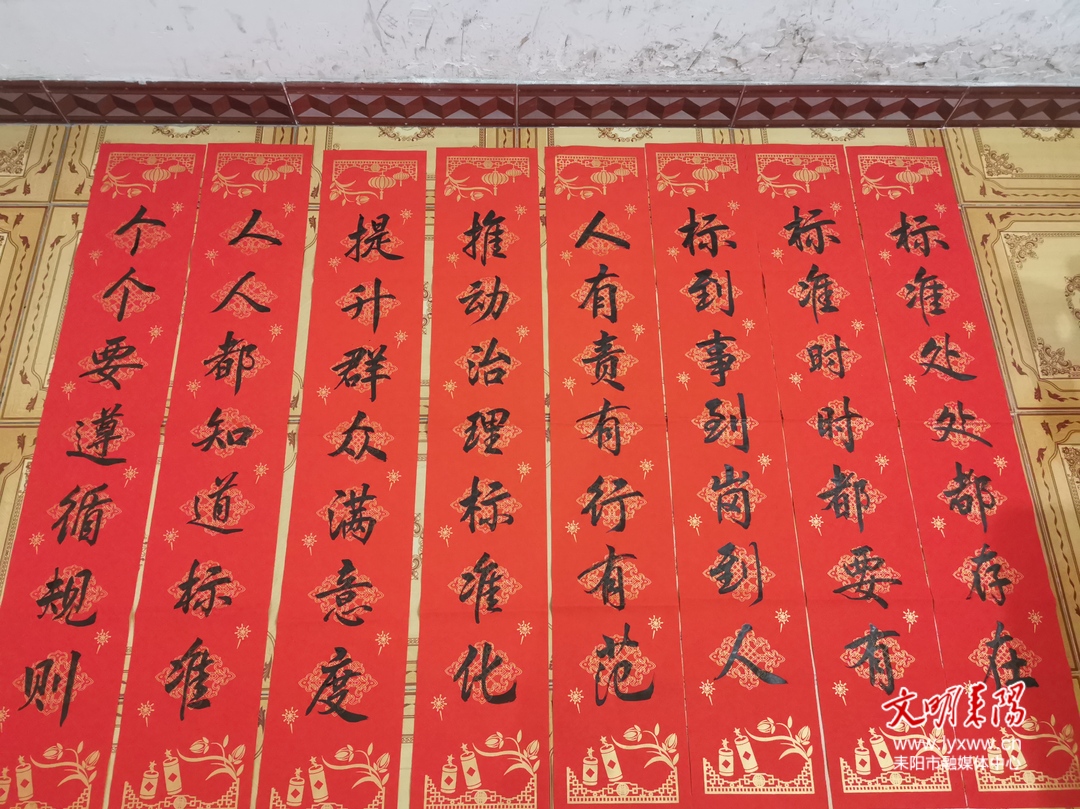 标准处处都存在
标准时时都要有
标到事到岗到人
人有责有行有范
推动治理标准化
提升群众满意度
人人都知道标准
个个要遵循规则
文明耒阳
www.lyxww.cn
耒阳市融媒体中心